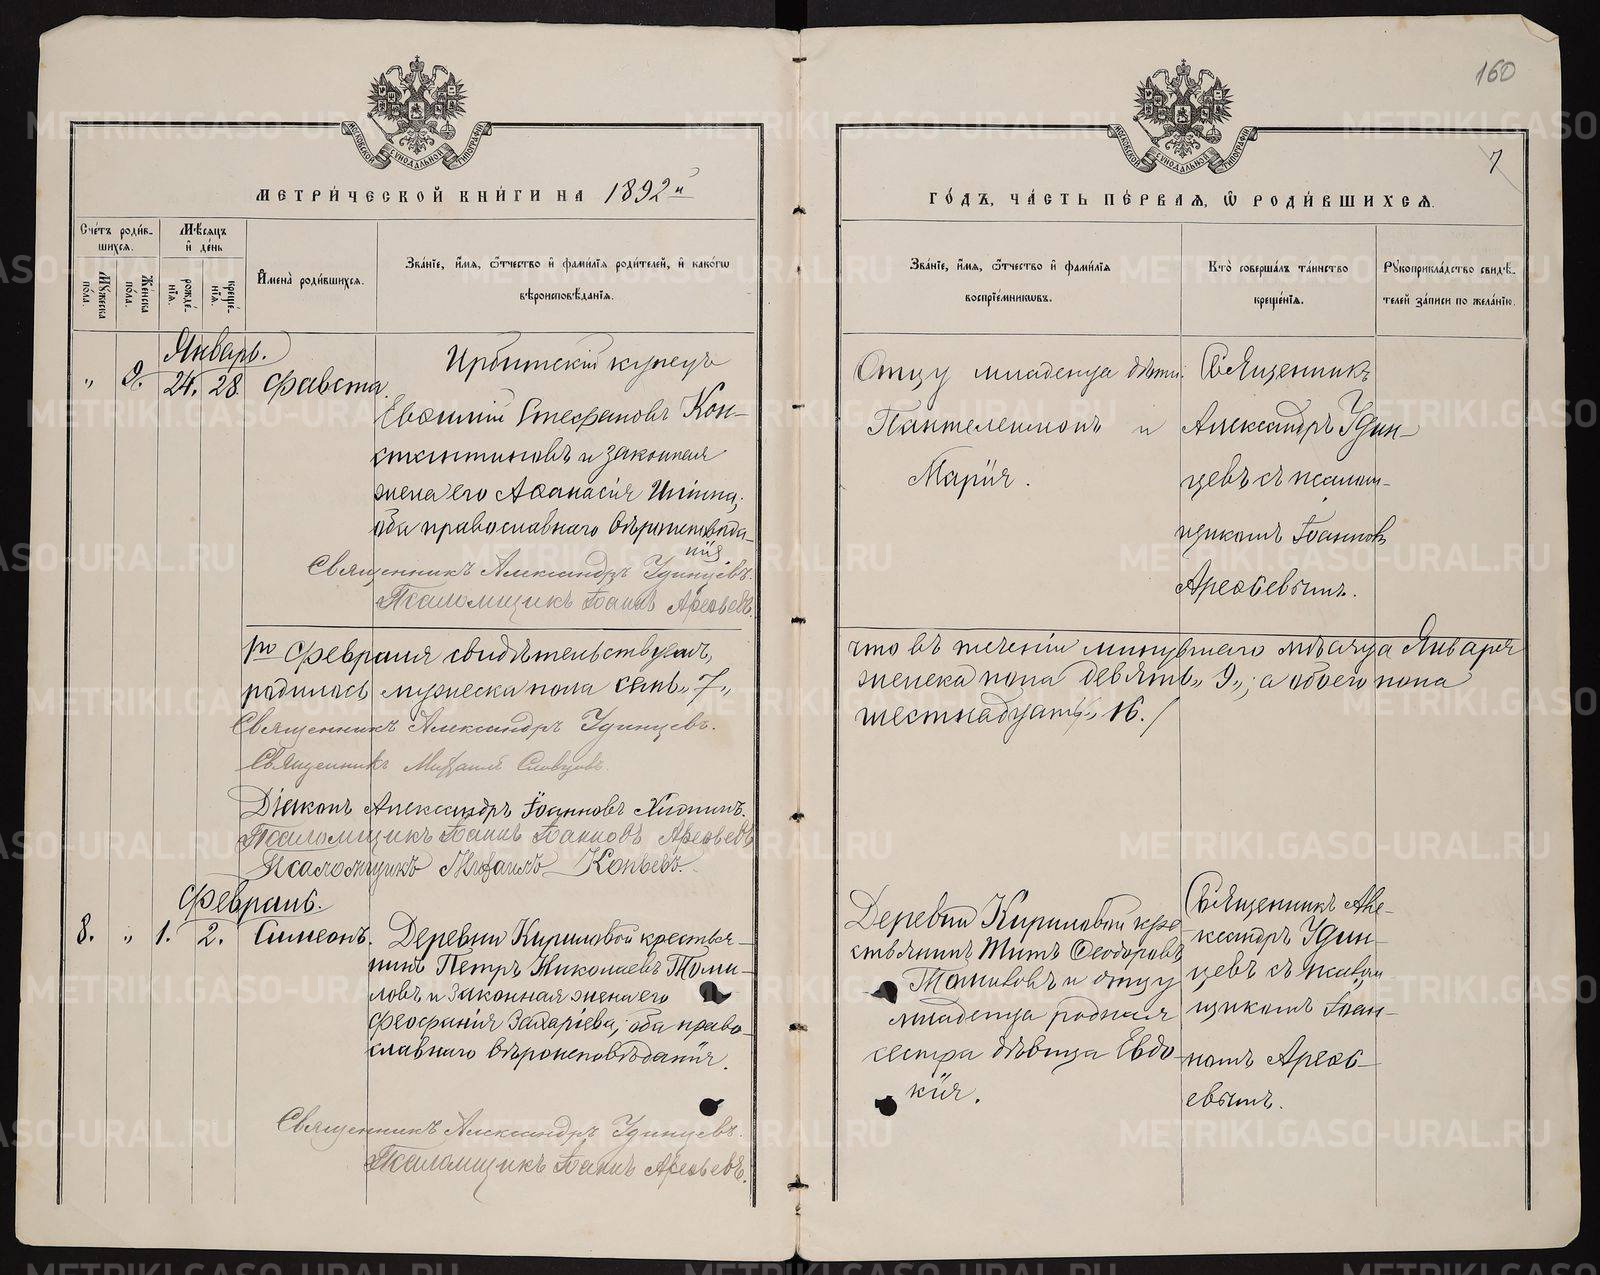 160
7
МОСКОВСКОЙ СУНОДАЛЬНОЙ ТИПОГРАФІИ
МЕТРИ́ЧЕСКОЙ КНИ́ГИ НА 1892й
Сче́тъ роди́в-
шихся.
Мꙋжеска
по́ла.
Же́нска
по́ла.
Мѣ́сяцъ
и҆ де́нь
рожде́-
нїѧ.
креще́-
нїѧ.
И҆мена̀ роди́вшихсѧ.
Зва́нїе, и҆́мѧ, ѻ҆́тчество и҆ фами́лїѧ роди́телей, и҆ како́гѡ
вѣроисповѣ́данїѧ.
Январь.
„ 9. 24. 28. Фавста.
Ирбитскій купецъ
Евѳимій Стефановъ Кон-
стантиновъ и законная
жена его Аѳанасія Ильина,
оба православнаго вѣроисповѣда-
нія.
Священникъ Александръ Удинцевъ.
Псаломщикъ Іоаннъ Арефьевъ.
1го Февраля свидѣтельствуемъ,
родилось мужеска пола семь „7„
Священникъ Александръ Удинцевъ.
Священникъ Михаилъ Словцовъ.
Діаконъ Александръ Іоанновъ Хионинъ.
Псаломщикъ Іоаннъ Іоанновъ Арефьевъ
Псаломщикъ Михаилъ Копьевъ.
Февраль.
8. „ 1. 2. Симеонъ.
Деревни Кириловой крестья-
нинъ Петръ Николаевъ Томи-
ловъ и законная жена его
Феофанія Захаріева, оба право-
славнаго вѣроисповѣданія.
Священникъ Александръ Удинцевъ.
Псаломщикъ Іоаннъ Арефьевъ.
МОСКОВСКОЙ СУНОДАЛЬНОЙ ТИПОГРАФІИ
ГО́ДЪ, ЧА́СТЬ ПЕ́РВАЯ, Ѽ РОДИ́ВШИХСЯ.
Зва́нїе, и҆́мѧ, ѻ҆́тчество и҆ фами́лїѧ
воспрїе́мникѡвъ.
Кто̀ соверша́лъ та́инство
креще́нїѧ.
Рꙋкоприкла́дство свидѣ́-
телей за́писи по жела́нїю.
Отцу младенца дѣти:
Пантелеимонъ и
Марія.
Священникъ
Александръ Удин-
цевъ съ псалом-
щикомъ Іоанновъ
Арефьевымъ.
что въ теченіи минувшаго мѣсяца Января
женска пола девять „9„; а обоего пола
шестнадцать „16.
Деревни Кириловой кре-
стьянинъ Титъ Ѳеодоровъ
Томиловъ и отцу
младенца родная
сестра дѣвица Евдо-
кія.
Священникъ Але-
ксандръ Удин-
цевъ съ псалом-
щикомъ Іоан-
номъ Арефь-
евымъ.
METRIKI.GASO-URAL.RU